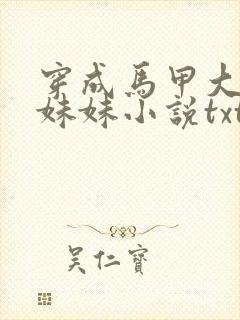 穿成馬甲大
妹妹小說txt
吴仁寶